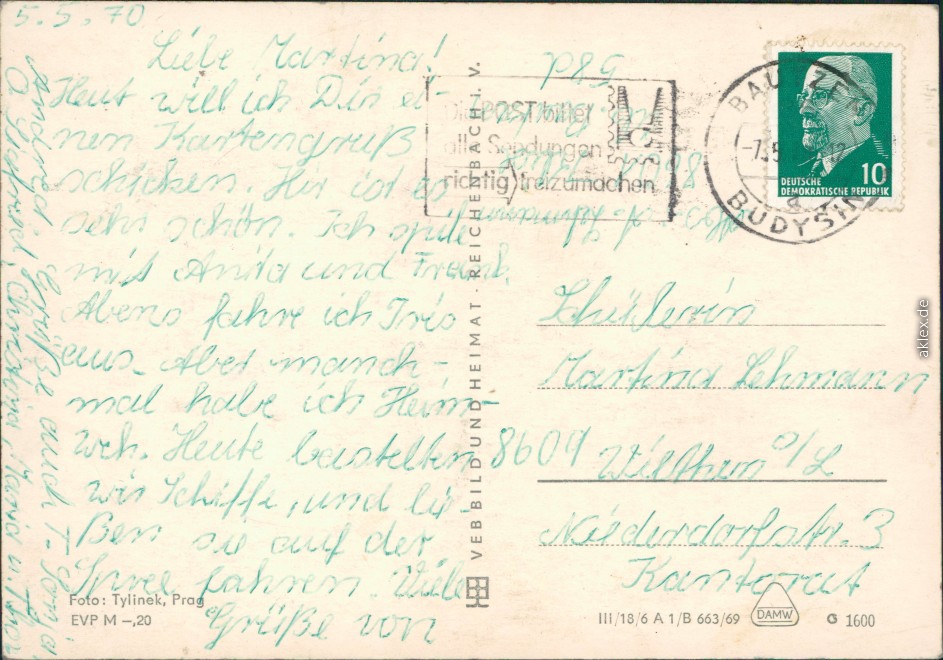 5.5.70
Liebe Martina!
Heut will ich Dir ei-
nen Kartengruß
schicken. Hir ist es
sehr schön. Ich spiele
mit Anita und Frank.
Abens fahre ich Iris
aus. Aber manch-
mal habe ich Heim-
weh. Heute bastelten
wir Schiffe, und lie-
ßen sie auf der
Spree fahren. Viele
Grüße von
Andrea Grüße auch T- Sonja,
O Christina, Maria u.
Abs.: A. Lehmann
86
Die POST bittet
alle Sendungen
richtig freizumachen
BAUTZEN
-7.5
BUDYŠIN
10
DEUTSCHE
DEMOKRATISCHE REPUBLIK
Schülerin
Martina Lehmann
8609 Wilthen o/L
Niederdorfstr. 3
Kantorat
VEB BILD UND HEIMAT · REICHENBACH i. V.
Foto: Tylinek, Prag
EVP M –,20
III/18/6 A 1/B 663/69
DAMW
G 1600
aklex.de